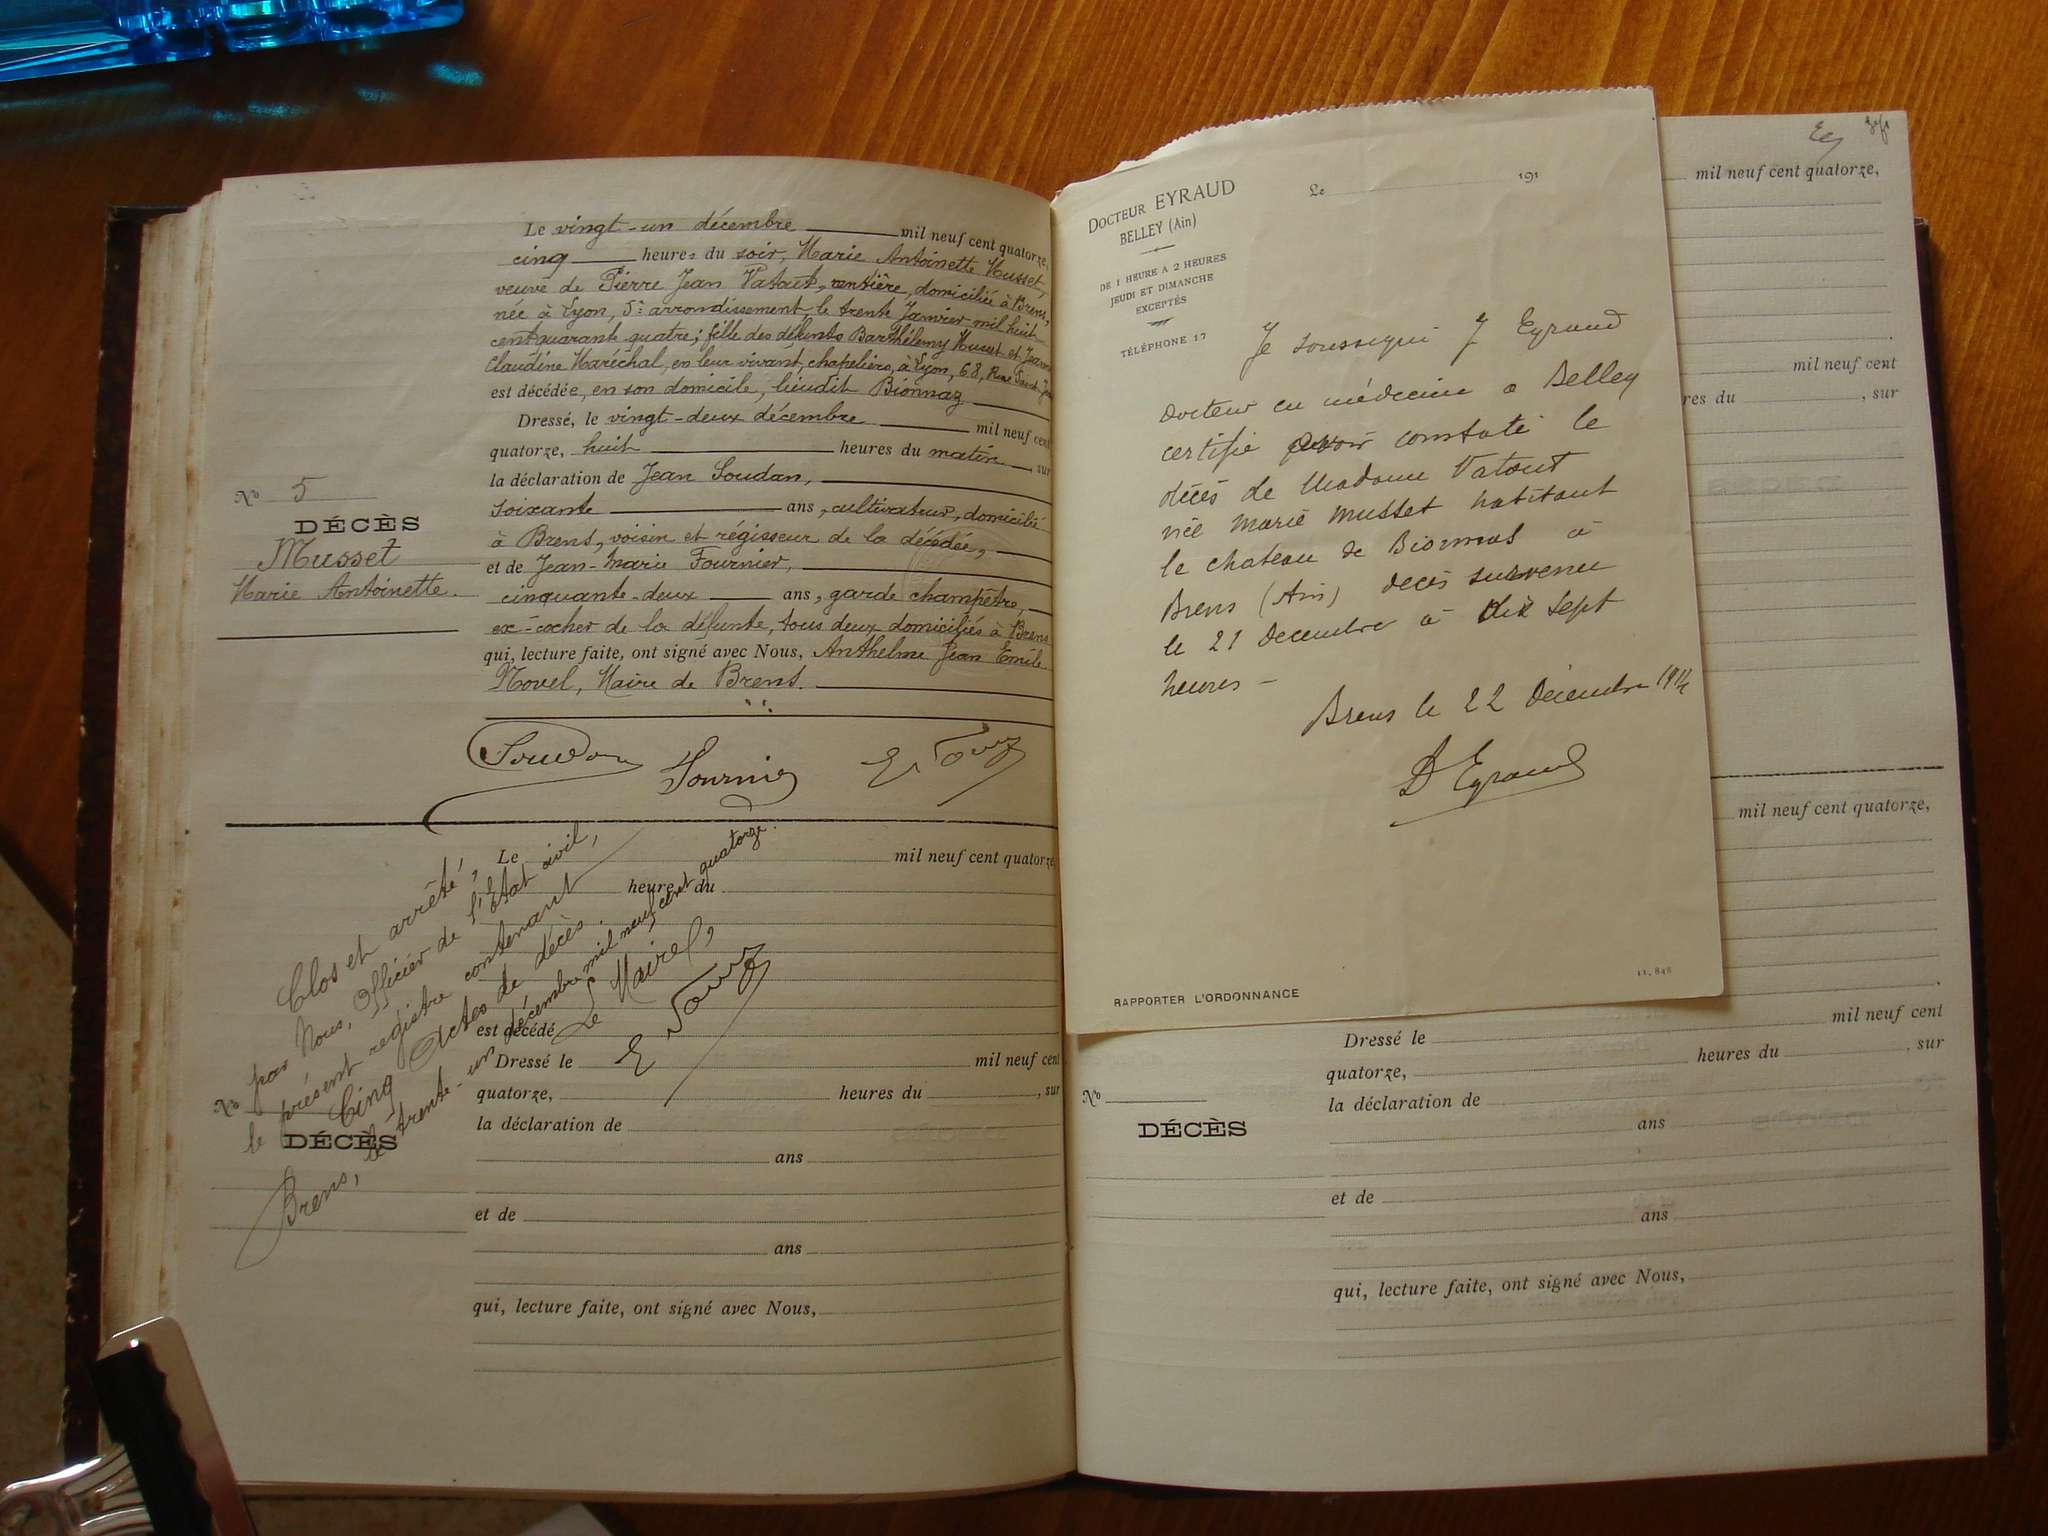 Le vingt-un décembre mil neuf cent quatorze,
cinq heures du soir, Marie Antoinette Musset,
veuve de Pierre Jean Vatout, rentière, domiciliée à Brens,
née à Lyon, 5e arrondissement, le trente Janvier mil huit
cent quarante quatre; fille des défunts Barthélemy Musset et Jeanne
Claudine Maréchal, en leur vivant, chapeliers, à Lyon, 68, Rue
est décédée, en son domicile, lieudit Bionnaz
Dressé, le vingt-deux décembre mil neuf cent
quatorze, huit heures du matin, sur
la déclaration de Jean Soudan,
soixante ans, cultivateur, domicilié
à Brens, voisin et régisseur de la décédée,
et de Jean-Marie Fournier,
cinquante-deux ans, garde champêtre,
ex-cocher de la défunte, tous deux domiciliés à Brens
qui, lecture faite, ont signé avec Nous, Anthelme Jean Emile
Novel, Maire de Brens.
No 5
DÉCÈS
Musset
Marie Antoinette.
Soudan Fournier
Clos et arrêté,
par Nous, Officier de l'Etat civil,
le présent registre contenant
Cinq Actes de décès.
Brens, le trente-un décembre mil neuf cent quatorze.
Le Maire,
Le mil neuf cent quatorze
heure du
est décédé
Dressé le mil neuf cent
quatorze, heures du , sur
No
DÉCÈS
la déclaration de
ans
et de
ans
qui, lecture faite, ont signé avec Nous,
DOCTEUR EYRAUD
BELLEY (Ain)
DE 1 HEURE A 2 HEURES
JEUDI ET DIMANCHE
EXCEPTÉS
TÉLÉPHONE 17
Le 191
Je soussigné J Eyraud
Docteur en médecine à Belley
certifie avoir constaté le
décès de Madame Vatout
née Marie Musset habitant
le chateau de Bionnas à
Brens (Ain) décès survenu
le 21 décembre à dix sept
heures -
Brens le 22 Décembre 1914
D Eyraud
RAPPORTER L'ORDONNANCE
11.848
mil neuf cent quatorze,
mil neuf cent
res du , sur
mil neuf cent quatorze,
Dressé le mil neuf cent
quatorze, heures du , sur
No
DÉCÈS
la déclaration de
ans
et de
ans
qui, lecture faite, ont signé avec Nous,